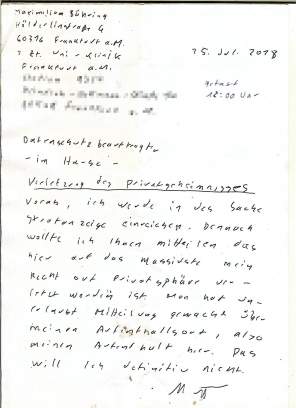 Maximilian Bühring
Hölderlinstraße 4
60316 Frankfurt a.M.
z.Zt. Uni-Klinik
Frankfurt a.M.
25. Jul. 2018
gefaxt
12:00 Uhr
Datenschutzbeauftragte
- im Hause -
Verletzung des Privatgeheimnisses
Vorab, ich werde in der Sache
Strafanzeige einreichen. Dennoch
wollte ich Ihnen mitteilen das
hier auf das massivste mein
Recht auf Privatsphäre ver-
letzt worden ist. Man hat un-
erlaubt Mitteilung gemacht über
meinen Aufenthaltsort, also
meinen Aufenthalt hier. Das
will ich definitiv nicht.